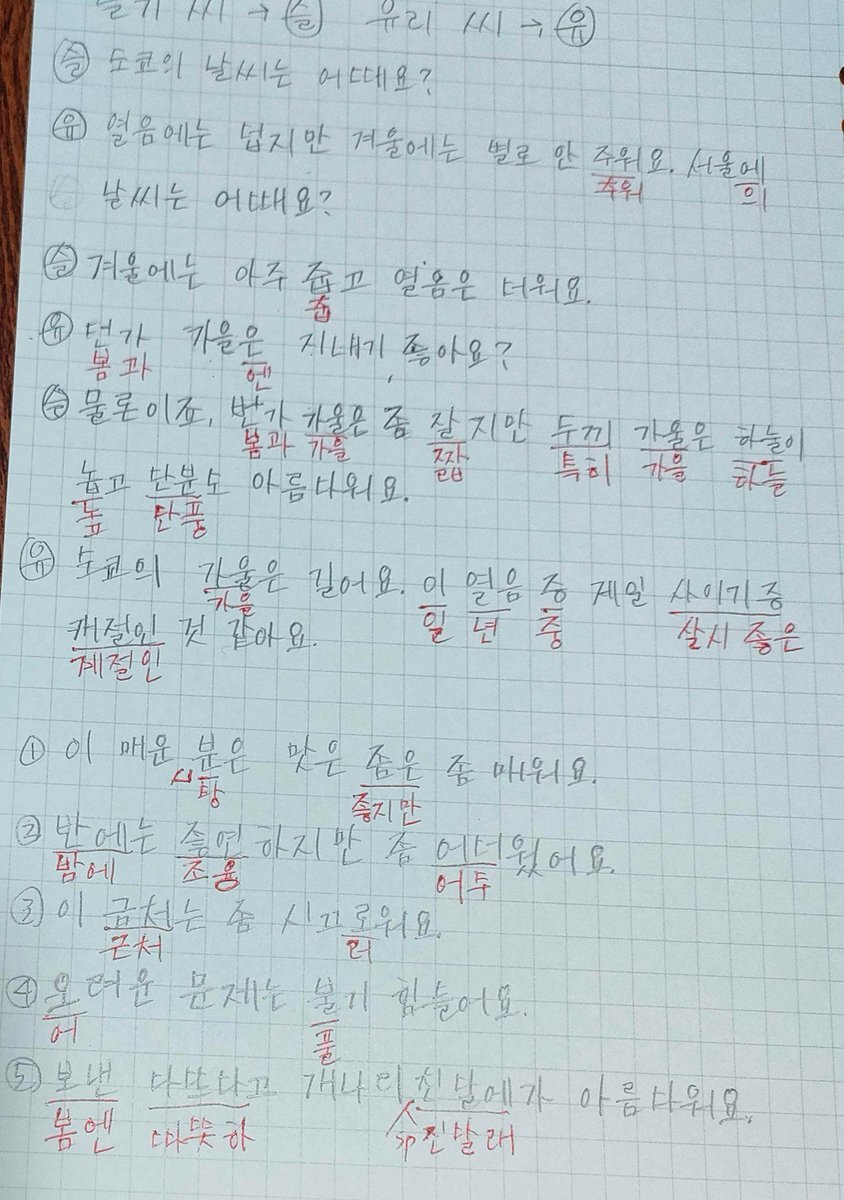 씨 → 슬 유리 씨 → 유
슬 도쿄의 날씨는 어때요?
유 열음에는 덥지만 겨울에는 별로 안 주워요. 서울에
추워 의
날씨는 어때요?
슬 겨울에는 아주 줍고 열음은 더워요.
춥
유 던가 가을은 지내기 좋아요?
봄과 엔
슬 물론이죠, 번가 가울은 좀 잘지만 두끼 가울은 하눌이
봄과 가을 짧 특히 가을 하늘
놉고 단분도 아름다워요.
높 단풍
유 도쿄의 가울은 길어요. 이 열음 중 제일 사이기중
가을 일 년 중 살시 좋은
캐절인 것 같아요.
계절인
① 이 매운 분은 맛은 좀은 좀 매워요.
사탕 좋지만
② 반에는 졸연하지만 좀 어더웠어요.
밤에 조용 어두
③ 이 금처는 좀 시끄로워요.
근처 러
④ 오려운 문제는 불기 힘들어요.
어 풀
⑤ 보낸 다또다고 개나리 친달에가 아름다워요.
봄엔 따뜻하 진달래